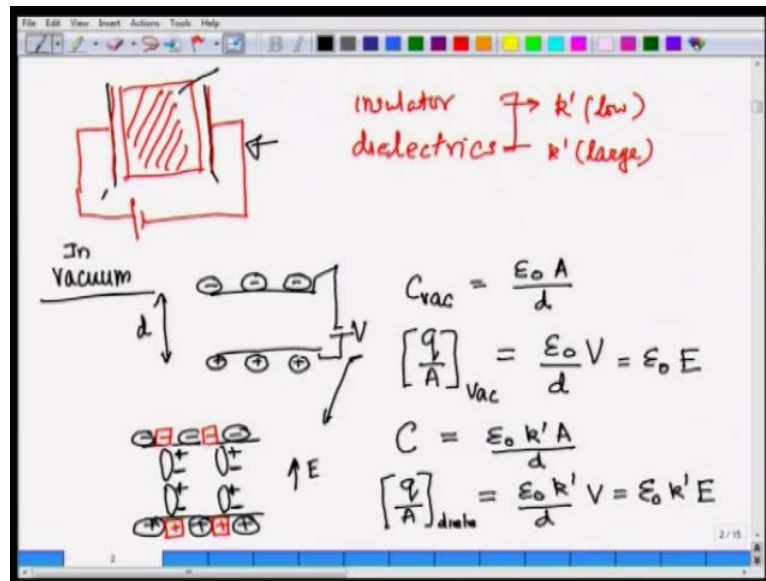 File Edit View Insert Actions Tools Help
B I
insulator → k' (low)
dielectrics k' (large)
In
Vacuum
d
- - -
V
+ + +
C_vac = ε₀ A / d
[q/A]_vac = ε₀/d V = ε₀ E
- - - - -
+ +
- -
+ +
- -
+ + + + +
↑ E
C = ε₀ k' A / d
[q/A]_diele = ε₀ k'/d V = ε₀ k' E
2 / 15
2